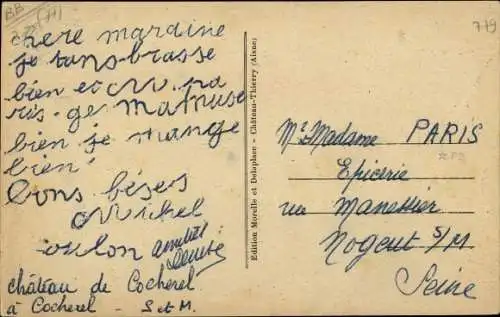 BB
chere mardine
je tans-brasse
bien et
ris. ge Mamuse
bien je mange
bien
bons béses
Michel
oulon
château de Cocherel
à Cocherel - S et M.
Edition Morelle et Delaplace - Château-Thierry (Aisne)
779
Mr Madame PARIS
Epicerie
rue Manessier
Nogent S/M
Seine